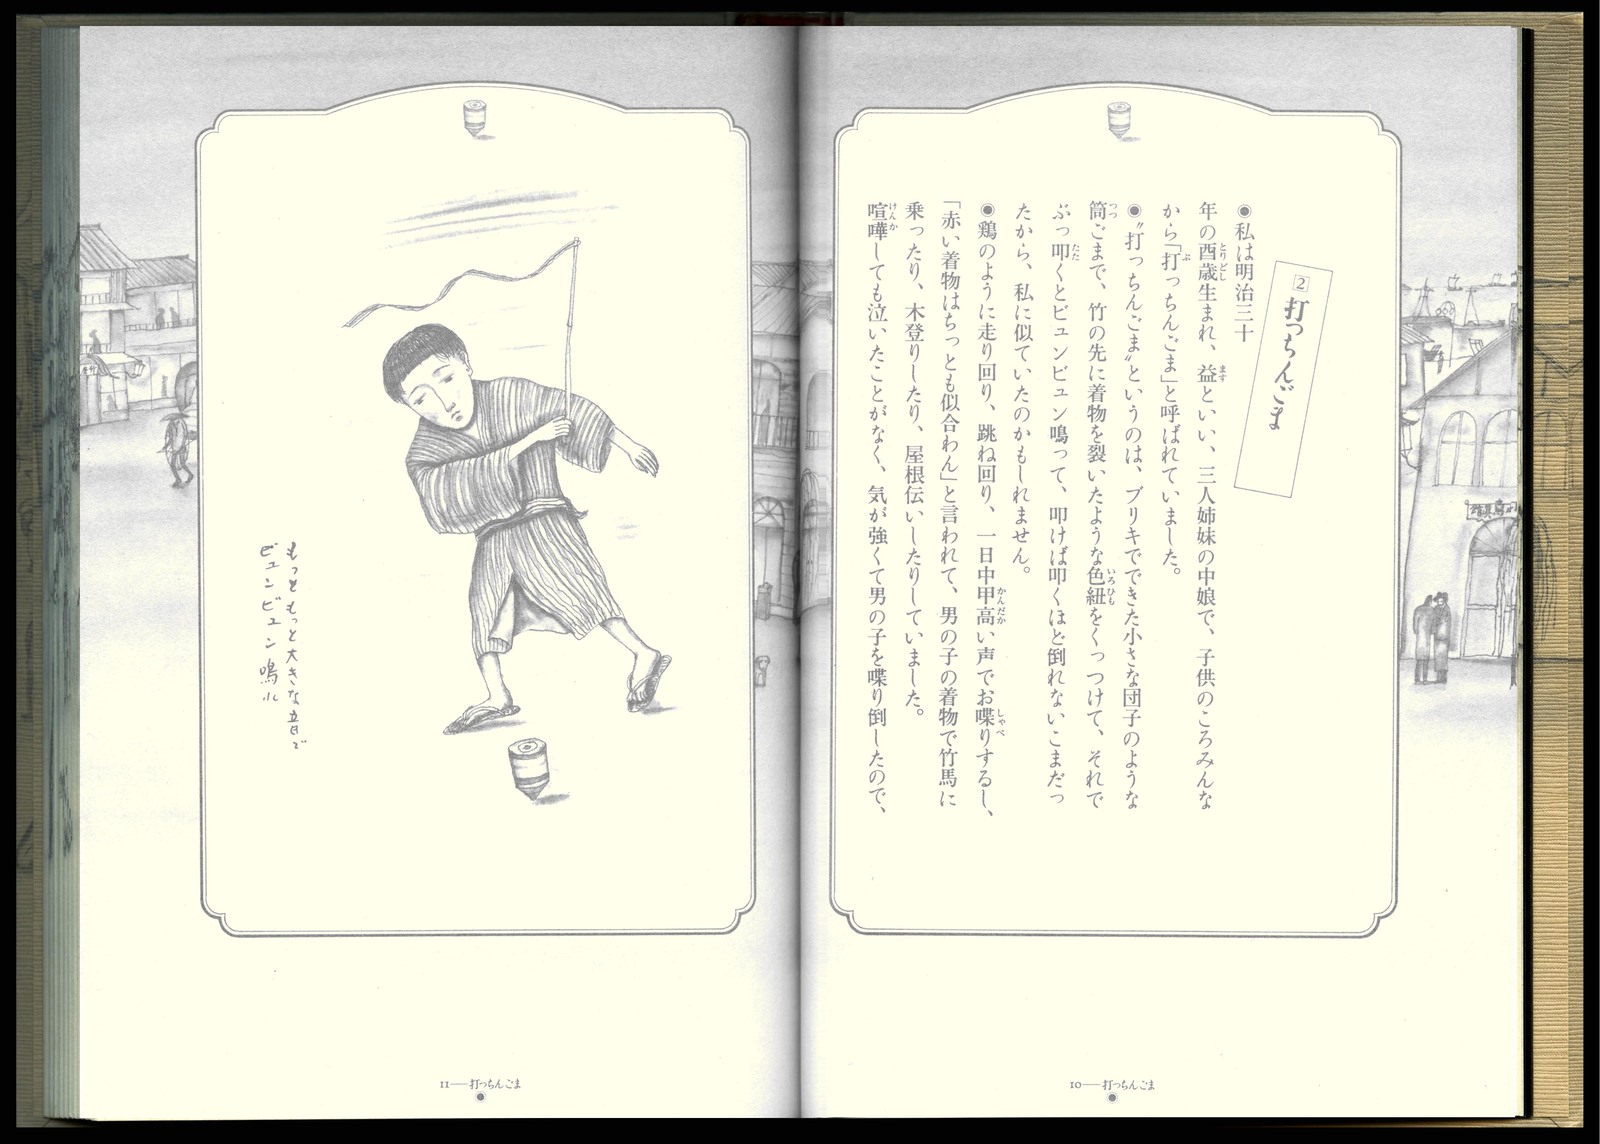 2 打っちんごま
◉私は明治三十
年の酉歳生まれ、益といい、三人姉妹の中娘で、子供のころみんな
から「打っちんごま」と呼ばれていました。
◉〝打っちんごま〟というのは、ブリキでできた小さな団子のような
筒ごまで、竹の先に着物を裂いたような色紐をくっつけて、それで
ぶっ叩くとビュンビュン鳴って、叩けば叩くほど倒れないこまだっ
たから、私に似ていたのかもしれません。
◉鶏のように走り回り、跳ね回り、一日中甲高い声でお喋りするし、
「赤い着物はちっとも似合わん」と言われて、男の子の着物で竹馬に
乗ったり、木登りしたり、屋根伝いしたりしていました。
喧嘩しても泣いたことがなく、気が強くて男の子を喋り倒したので、
10──打っちんごま
もっともっと大きな音で
ビュンビュン鳴れ
11──打っちんごま